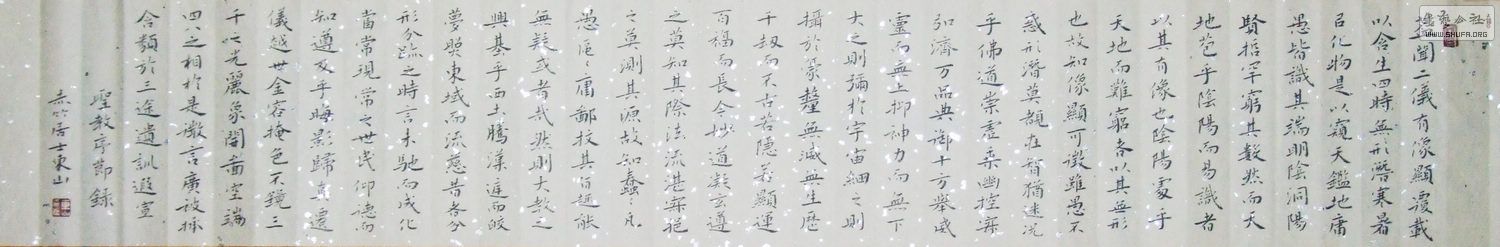 盖聞二儀有像顯覆載
以含生四時無形潛寒暑
以化物是以窺天鑑地庸
愚皆識其端明陰洞陽
賢哲罕窮其數然而天
地苞乎陰陽而易識者
以其有像也陰陽處乎
天地而難窮者以其無形
也故知像顯可徵雖愚不
惑形潛莫覩在智猶迷況
乎佛道崇虛乘幽控寂
弘濟万品典御十方舉威
靈而無上抑神力而無下
大之則彌於宇宙細之則
攝於豪釐無滅無生歷
千劫而不古若隱若顯運
百福而長今妙道凝玄遵
之莫知其際法流湛寂挹
之莫測其源故知蠢々凡
愚區々庸鄙投其旨趣能
無疑或者哉然則大教之
興基乎西土騰漢庭而皎
夢照東域而流慈昔者分
形分跡之時言未馳而成化
當常現常之世民仰德而
知遵及乎晦影歸真遷
儀越世金容掩色不鏡三
千之光麗象開啚空端
四八之相於是微言廣被拯
含類於三途遺訓遐宣
聖教序節錄
居士東山
WWW.SHUFA.ORG